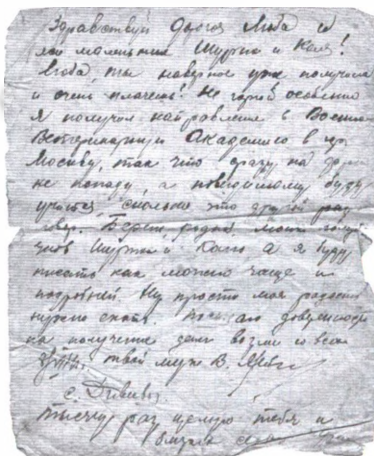 Здравствуй дорогая Люба и
мои маленькие Шурка и Коля!
Люба, ты наверное уже получила
и очень плачешь! Не горюй особенно
Я получил направление в Военно
Ветеринарную Академию в гор
Москву, так что сразу на фронт
не попаду, а повидимому буду
учиться сколько это другой раз
Береги, родная, моих
Шурку и Колю а я буду
писать как можно чаще и
подробней. Ну прости моя радость
нужно спать. доверенность
на получение возьми и
твой муж В.
с. Дивово
тысячу раз целую тебя и